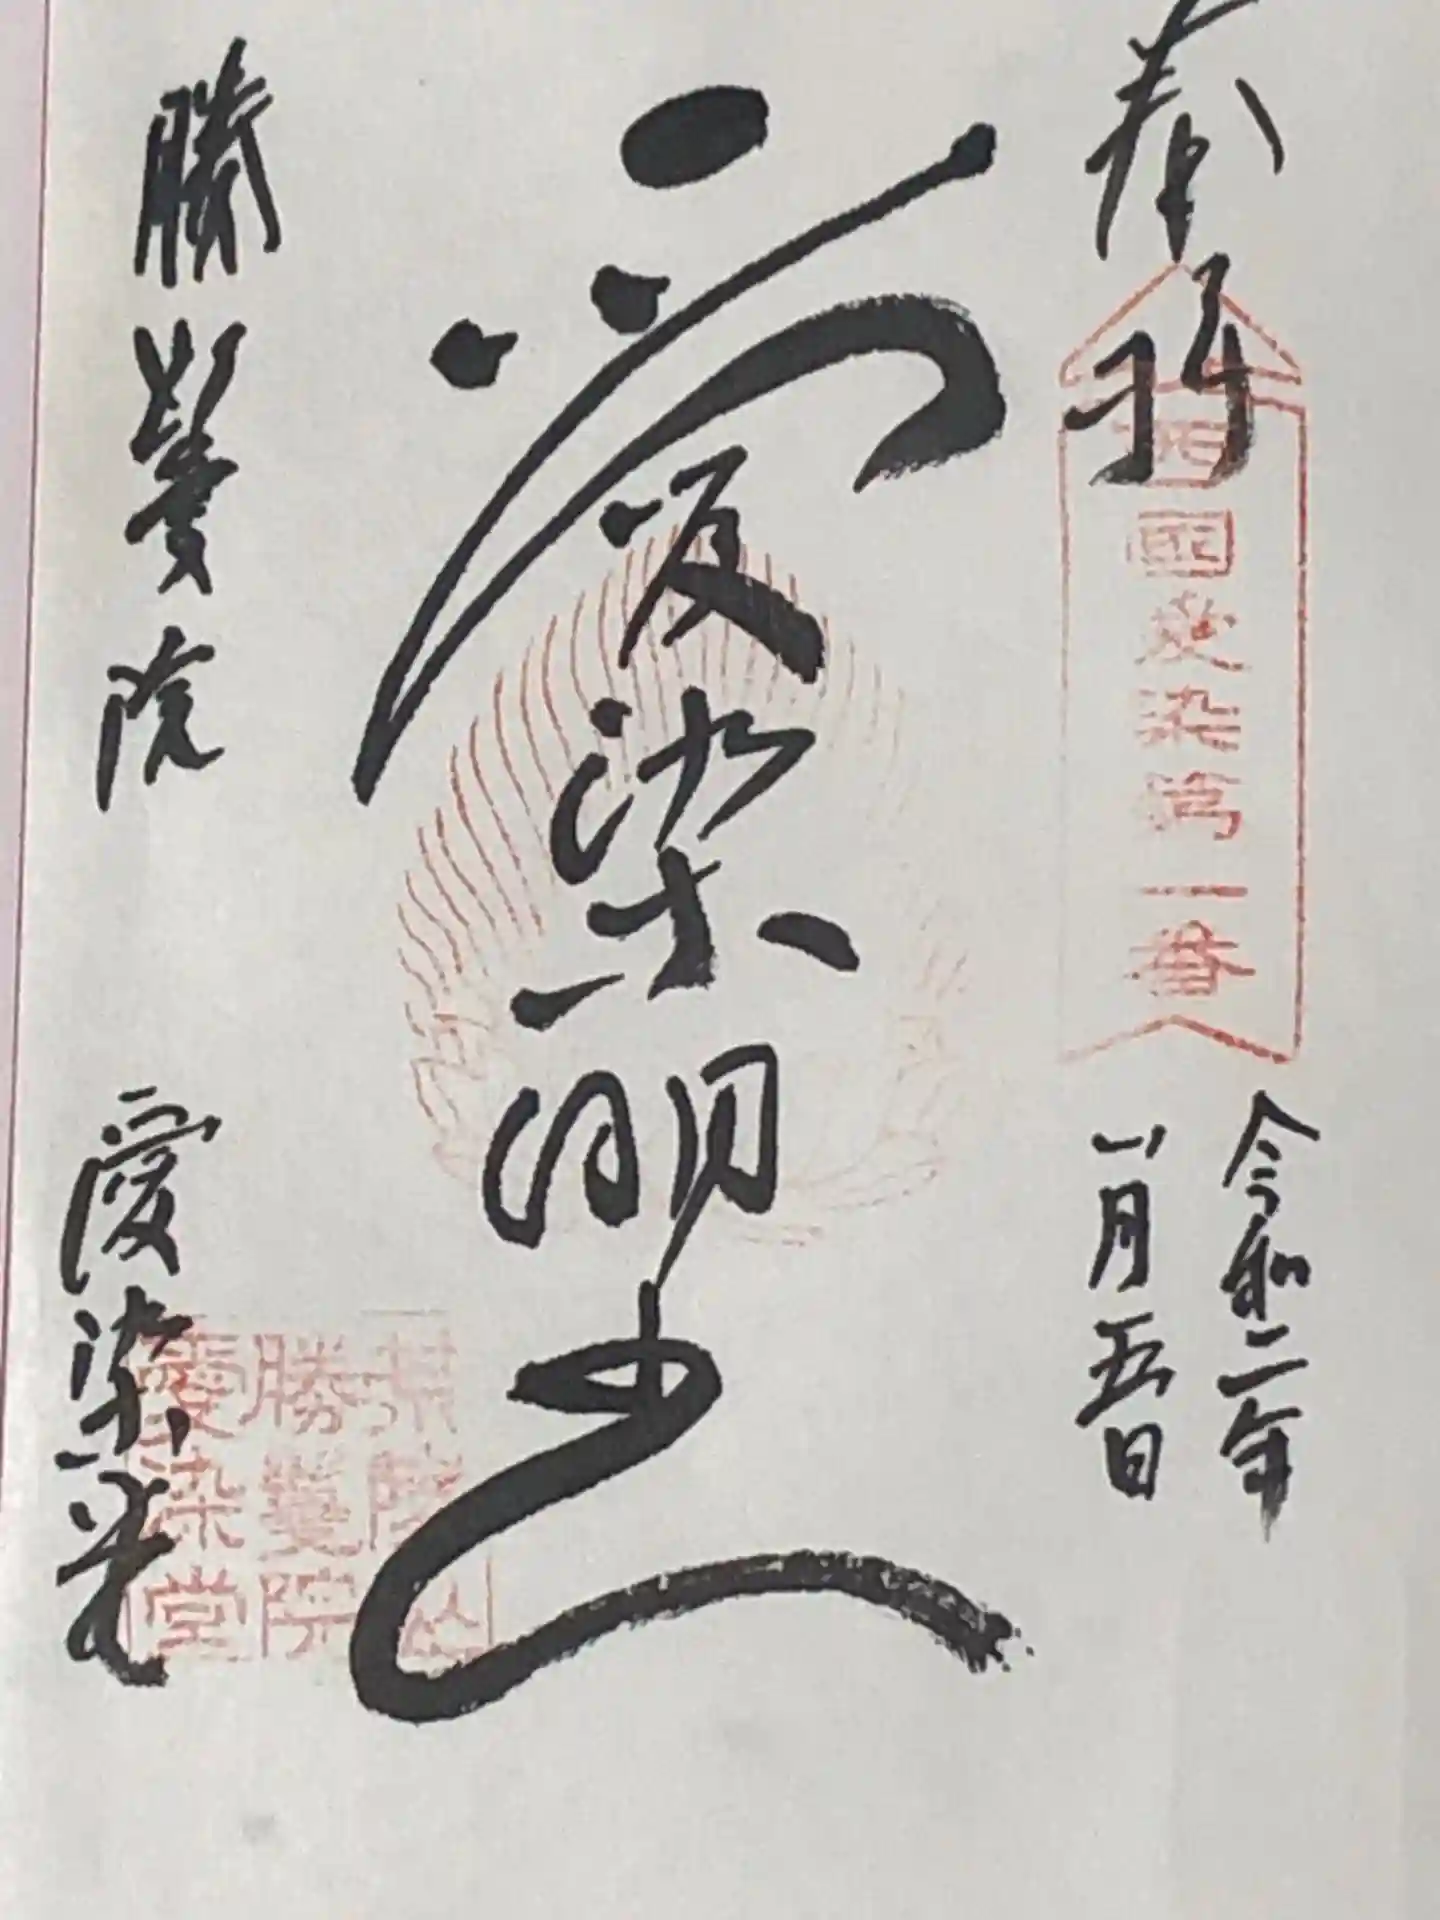 奉拝
西國愛染第一番
令和二年
八月五日
愛染明王
勝鬘院 愛染堂
荒陵山
勝鬘院
愛染堂